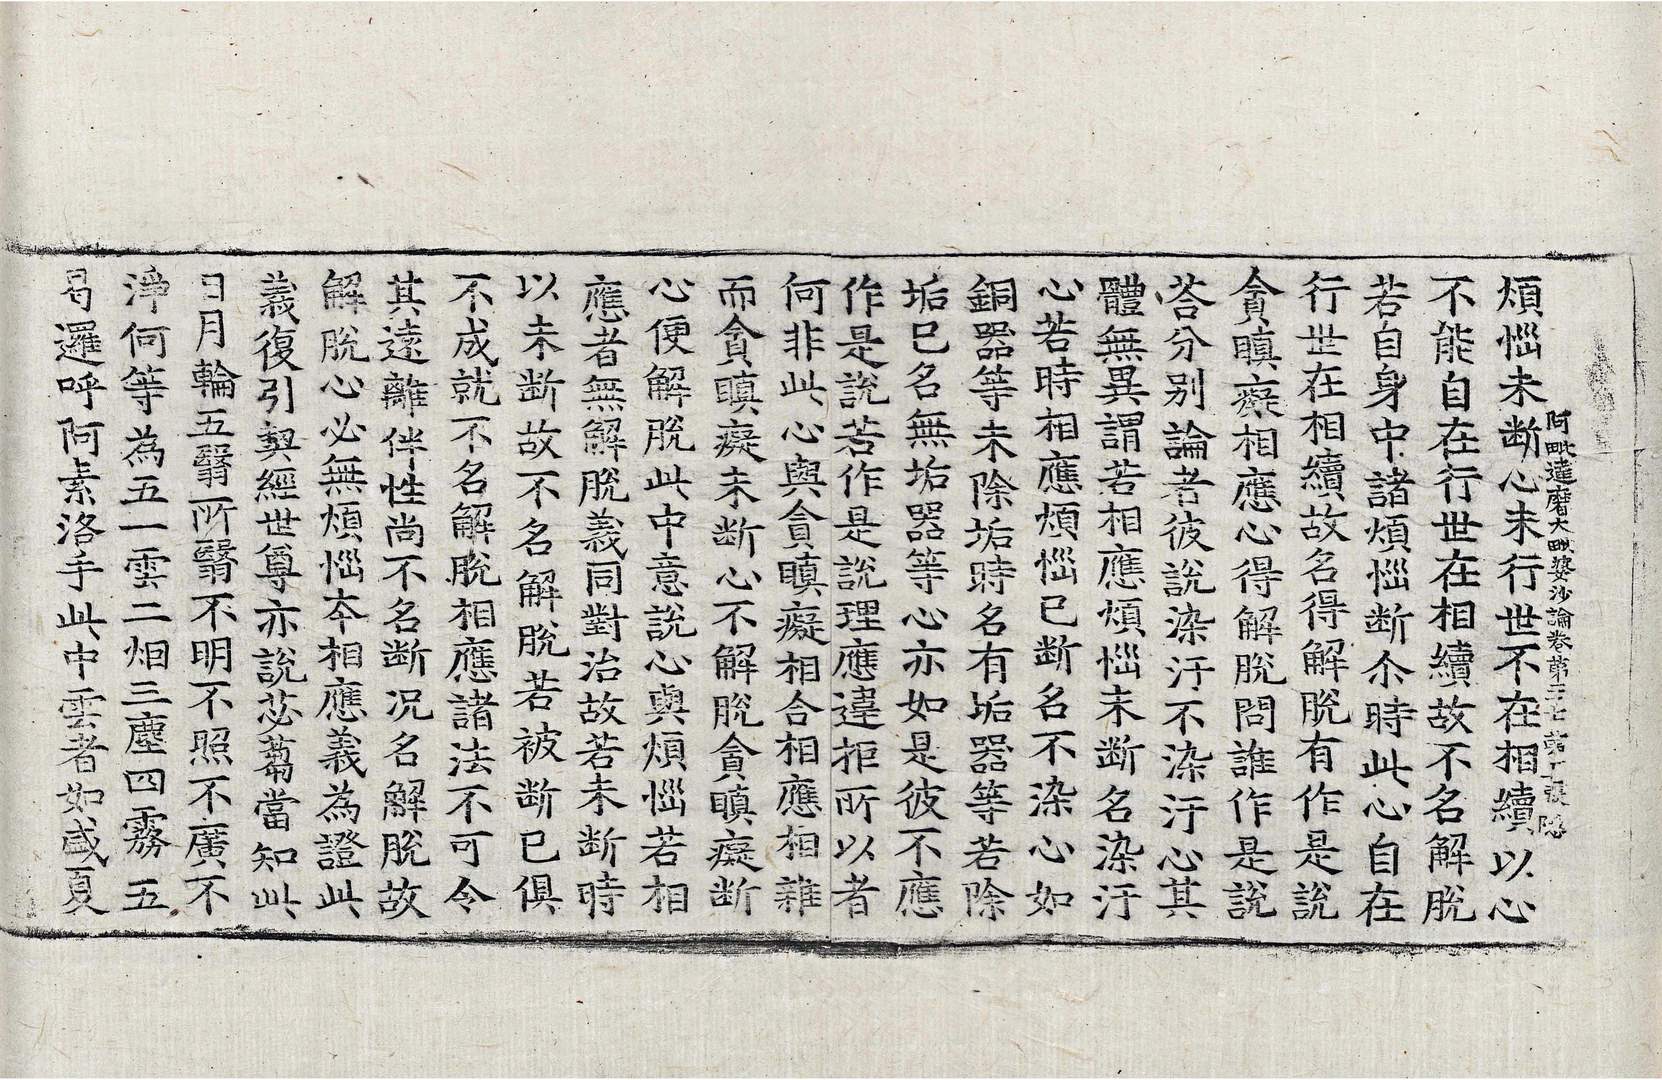 阿毗達磨大毗婆沙論卷第二七 第 張 隱
煩惱未断心未行世不在相續以心
不能自在行世在相續故不名解脫
若自身中諸煩惱断尒時此心自在
行世在相續故名得解脫有作是說
貪瞋癡相應心得解脫問誰作是說
荅分别論者彼說染汙不染汙心其
體無異謂若相應煩惱未断名染汙
心若時相應煩惱已断名不染心如
銅器等未除垢時名有垢器等若除
垢已名無垢器等心亦如是彼不應
作是說若作是說理應違拒所以者
何非此心與貪瞋癡相合相應相雜
而貪瞋癡未断心不解脫貪瞋癡断
心便解脫此中意說心與煩惱若相
應者無解脫義同對治故若未断時
以未断故不名解脫若被断已俱
不成就不名解脫相應諸法不可令
其遠離伴性尚不名断况名解脫故
解脫心必無煩惱夲相應義為證此
義復引契經世尊亦說苾蒭當知此
日月輪五翳所翳不明不照不廣不
淨何等為五一雲二烟三塵四霧五
曷邏呼阿素洛手此中雲者如盛夏